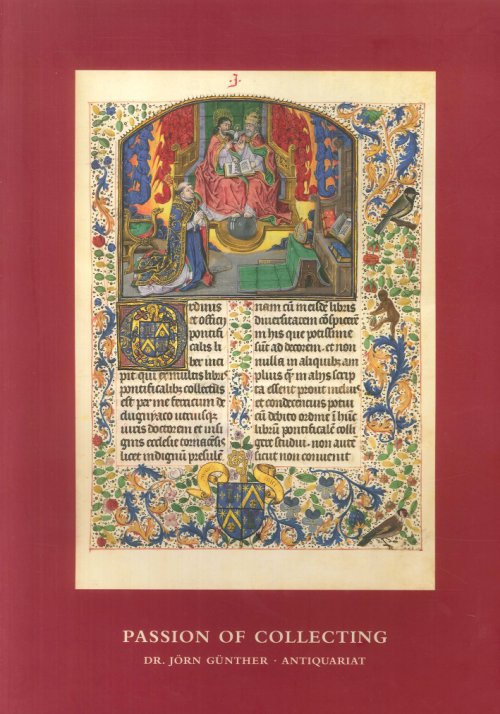 ·J·
Ordinis
et officij
pontifi
calis li
ber inci
pit qui ex multis libris
pontificalibꝫ collectus
est per me ferricum de
clugniaco utriusqꝫ
iuris doctorem et insi
gnis ecclesie tornacēsis
licet indignū presulē
nam cū in eisdē libris
diuersitatem cōspicerē
in his que potissime
sūt ad decorem et non
nulla in aliquibꝫ am
plius qꝫ in alijs scrip
ta essent prout melius
et condecencius potui
cū debito ordine ī hūc
librū pontificalē colli
gere studui non autē
sicut non conuenit
PASSION OF COLLECTING
DR. JÖRN GÜNTHER · ANTIQUARIAT